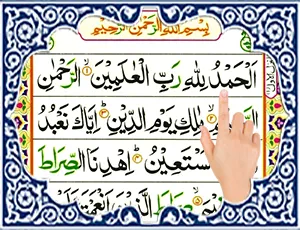 بِسْمِ اللهِ الرَّحْمٰنِ الرَّحِيْمِ
اَلْحَمْدُ لِلّٰهِ رَبِّ الْعٰلَمِيْنَ ۙ﴿۱﴾ الرَّحْمٰنِ
مٰلِكِ يَوْمِ الدِّيْنِ ؕ﴿۳﴾ اِيَّاكَ نَعْبُدُ
اِهْدِنَا الصِّرَاطَ
صِرَاطَ الَّذِيْنَ اَنْعَمْتَ